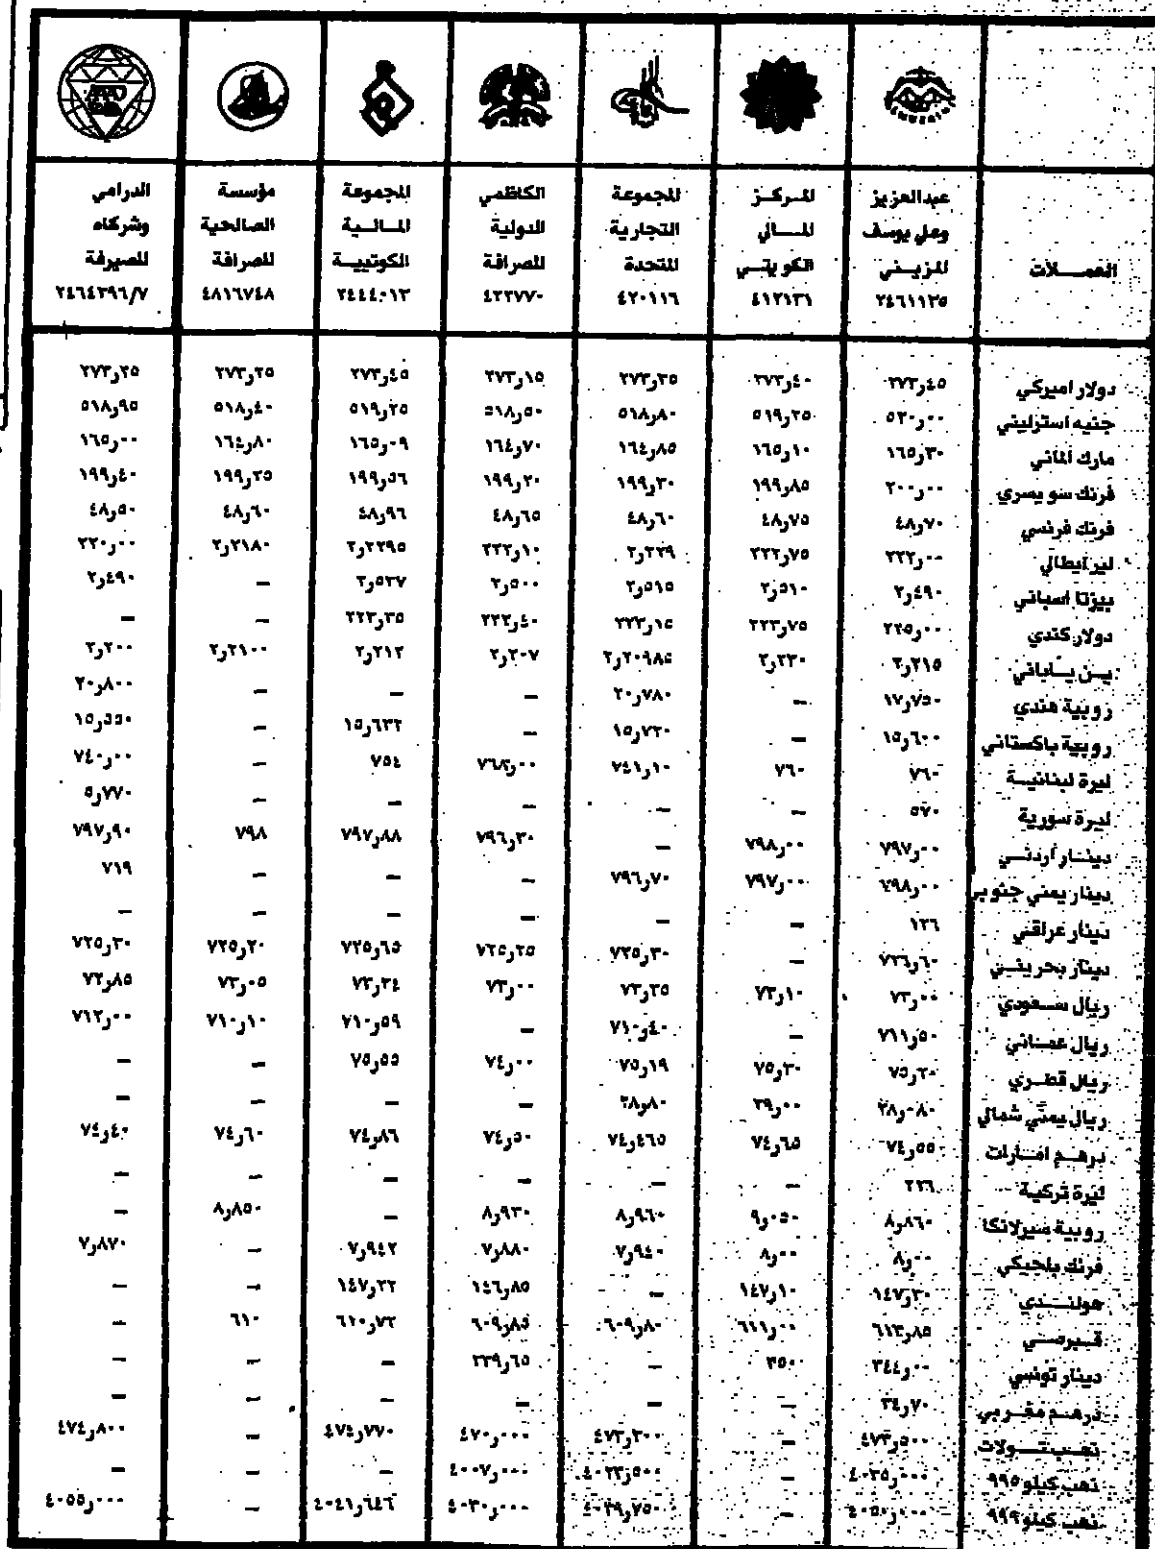 العمـــلات | عبدالعزيز وعلي يوسف المزيـني ٢٤٦١١٣٥ | المـركـز المــالي الكويتـي ٤١٢١٣١ | المجموعة التجارية المتحدة ٤٢٠١١٦ | الكاظمي الدولية للصرافة ٤٢٣٧٧٠ | المجموعة المـالـيـة الكويتيـة ٢٤٤٤٠١٣ | مؤسسة الصالحية للصرافة ٤٨١٦٧٤٨ | الدرامي وشركاه للصيرفة ٢٤٦٤٣٩٦/٧
دولار اميركي ٢٧٣,٤٥ ٢٧٣,٤٠ ٢٧٣,٣٥ ٢٧٣,١٥ ٢٧٣,٤٥ ٢٧٣,٢٥ ٢٧٣,٢٥
جنيه استرليني ٥٢٠,٠٠ ٥١٩,٢٥ ٥١٨,٨٠ ٥١٨,٥٠ ٥١٩,٢٥ ٥١٨,٤٠ ٥١٨,٩٥
مارك الماني ١٦٥,٣٠ ١٦٥,١٠ ١٦٤,٨٥ ١٦٤,٧٠ ١٦٥,٠٩ ١٦٤,٨٠ ١٦٥,٠٠
فرنك سويسري ٢٠٠,٠٠ ١٩٩,٨٥ ١٩٩,٣٠ ١٩٩,٢٠ ١٩٩,٥٦ ١٩٩,٢٥ ١٩٩,٤٠
فرنك فرنسي ٤٨,٧٠ ٤٨,٧٥ ٤٨,٦٠ ٤٨,٦٥ ٤٨,٩٦ ٤٨,٦٠ ٤٨,٥٠
لير ايطالي ٢٢٢,٠٠ ٢٢٢,٧٥ ٢,٢٢٩ ٢٢٢,١٠ ٢,٢٢٩٥ ٢,٢١٨٠ ٢٢٠,٠٠
بيزتا اسباني ٢,٤٩٠ ٢,٥١٠ ٢,٥١٥ ٢,٥٠٠ ٢,٥٣٧ – ٢,٤٩٠
دولار كندي ٢٢٥,٠٠ ٢٢٣,٧٥ ٢٢٣,١٥ ٢٢٢,٤٠ ٢٢٣,٣٥ – –
يـن يــاباني ٢,٢١٥ ٢,٢٣٠ ٢,٢٠٩٨٥ ٢,٢٠٧ ٢,٢١٢ ٢,٢١٠٠ ٢,٢٠٠
روبية هندي ١٧,٧٥٠ – ٢٠,٧٨٠ – – – ٢٠,٨٠٠
روبية باكستاني ١٥,٦٠٠ – ١٥,٧٢٠ – ١٥,٦٣٢ – ١٥,٥٥٠
ليرة لبنانيـة ٧٦٠ ٧٦٠ ٧٤١,١٠ ٧٦٢,٠٠ ٧٥٤ – ٧٤٠,٠٠
ليرة سورية ٥٧٠ – – – – – ٥,٧٧٠
دينـار أردنـي ٧٩٧,٠٠ ٧٩٨,٠٠ – ٧٩٦,٣٠ ٧٩٧,٨٨ ٧٩٨ ٧٩٧,٩٠
دينار يمني جنوبي ٧٩٨,٠٠ ٧٩٧,٠٠ ٧٩٦,٧٠ – – – ٧١٩
دينار عراقي ١٢٦ – – – – – –
دينار بحرينـي ٧٢٦,٦٠ – ٧٢٥,٣٠ ٧٢٥,٢٥ ٧٢٥,٦٥ ٧٢٥,٢٠ ٧٢٥,٣٠
ريال سـعودي ٧٣,٠٠ ٧٣,١٠ ٧٣,٢٥ ٧٣,٠٠ ٧٣,٣٤ ٧٣,٠٥ ٧٢,٨٥
ريال عمـاني ٧١١,٥٠ – ٧١٠,٤٠ – ٧١٠,٥٩ ٧١٠,١٠ ٧١٢,٠٠
ريال قطـري ٧٥,٢٠ ٧٥,٣٠ ٧٥,١٩ ٧٤,٠٠ ٧٥,٥٥ – –
ريال يمني شمالي ٣٨,٠٨٠ ٣٩,٠٠ ٣٨,٨٠ – – – –
درهـم امـارات ٧٤,٥٥ ٧٤,٦٥ ٧٤,٤٦٥ ٧٤,٥٠ ٧٤,٨٦ ٧٤,٦٠ ٧٤,٤٠
ليرة تركية ٢٢٦ – – – – – –
روبية سيرلانكا ٨,٨٦٠ ٩,٠٥٠ ٨,٩٦٠ ٨,٩٣٠ – ٨,٨٥٠ –
فرنك بلجيكي ٨,٠٠ ٨,٠٠ ٧,٩٤٠ ٧,٨٨٠ ٧,٩٤٢ – ٧,٨٧٠
هولنــدي ١٤٧,٣٠ ١٤٧,١٠ – ١٤٦,٨٥ ١٤٧,٢٢ – –
قبـرصـي ٦١٣,٨٥ ٦١١,٠٠ ٦٠٩,٨٠ ٦٠٩,٨٥ ٦١٠,٧٢ ٦١٠ –
دينار تونسي ٣٤٤,٠٠ ٣٥٠٠ – ٣٣٩,٦٥ – – –
درهـم مغـربي ٣٤,٧٠ – – – – – –
ذهـب تــولات ٤٧٣,٥٠٠ – ٤٧٣,٣٠٠ ٤٧٠,٠٠٠ ٤٧٤,٧٧٠ – ٤٧٤,٨٠٠
ذهب كيلو ٩٩٥ ٤٠٣٥,٠٠٠ – ٤٠٢٣,٥٠٠ ٤٠٠٧,٠٠٠ – – –
ذهب كيلو ٩٩٩ ٤٠٥٠,٠٠٠ – ٤٠٣٩,٧٥٠ ٤٠٣٠,٠٠٠ ٤٠٤١,٦٤٦ – ٤٠٥٥,٠٠٠